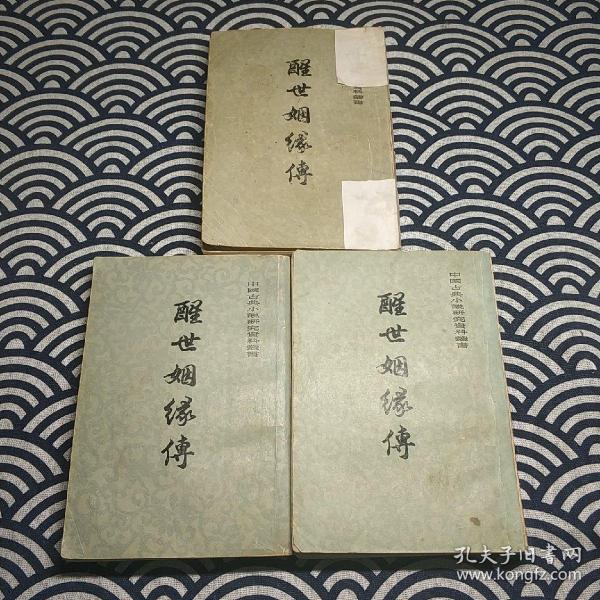 醒世姻緣傳
料叢書
醒世姻緣傳
中國古典小說研究資料叢書
醒世姻緣傳
中國古典小說研究資料叢書
孔夫子旧书网
www.kongfz.com